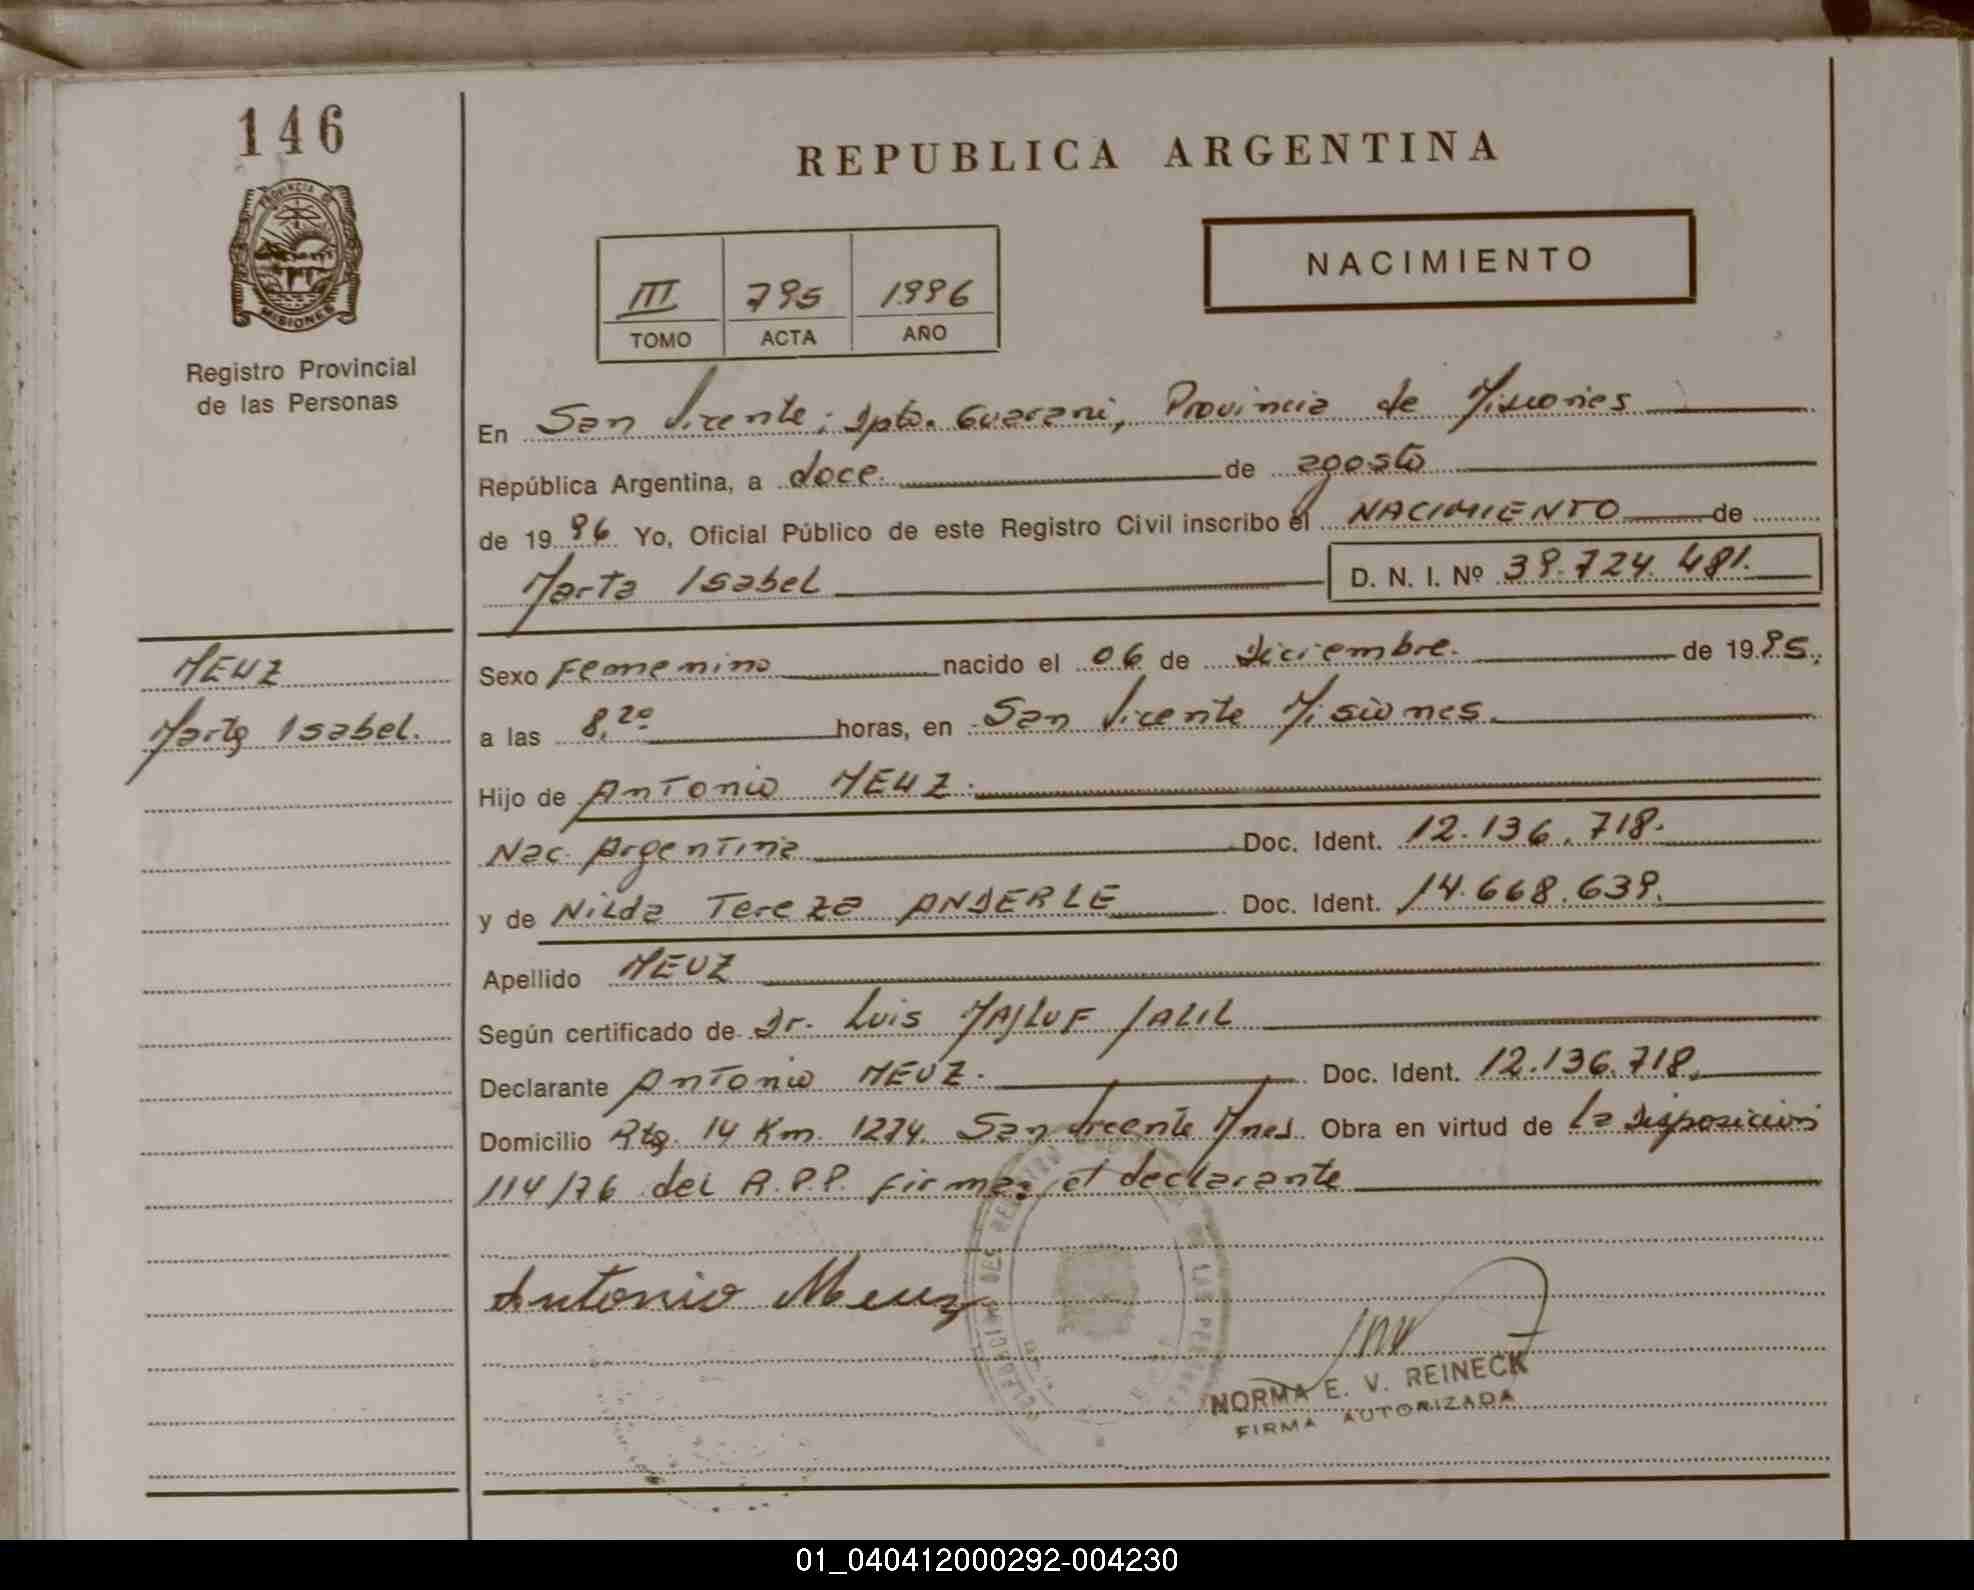 146
PROVINCIA DE
MISIONES
Registro Provincial
de las Personas
REPUBLICA ARGENTINA
III 795 1996
TOMO ACTA AÑO
NACIMIENTO
En San Vicente; Dpto. Guarani, Provincia de Misiones
República Argentina, a doce. de agosto
de 19 96 Yo, Oficial Público de este Registro Civil inscribo el NACIMIENTO de
Marta Isabel D. N. I. Nº 39.724.481.
MEUZ
Marta Isabel.
Sexo Femenino nacido el 06 de Diciembre. de 19 95,
a las 8,20 horas, en San Vicente Misiones.
Hijo de Antonio MEUZ.
Nac. Argentina Doc. Ident. 12.136.718.
y de Nilda Tereza ANDERLE Doc. Ident. 14.668.639.
Apellido MEUZ
Según certificado de Dr. Luis MAJLUF JALIL
Declarante Antonio MEUZ. Doc. Ident. 12.136.718.
Domicilio Rta. 14 Km. 1274. San Vicente Mnes. Obra en virtud de la Disposición
114/76 del R.P.P. firma el declarante
Antonio Meuz
NORMA E. V. REINECK
FIRMA AUTORIZADA
01_040412000292-004230